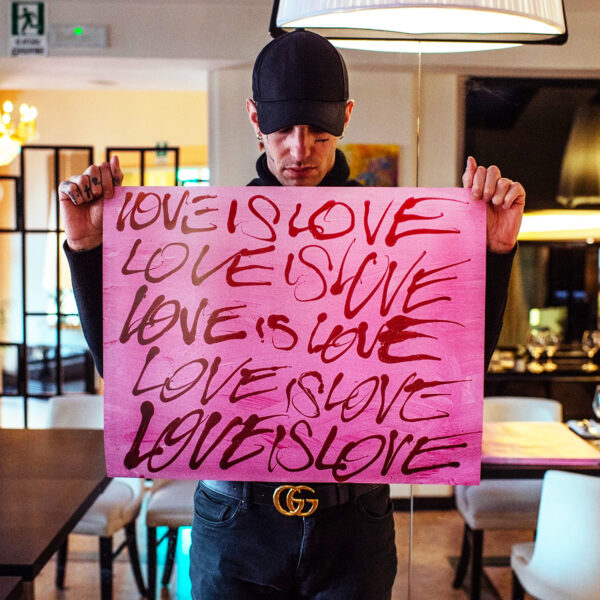 LOVE IS LOVE
LOVE IS LOVE
LOVE IS LOVE
LOVE IS LOVE
LOVE IS LOVE